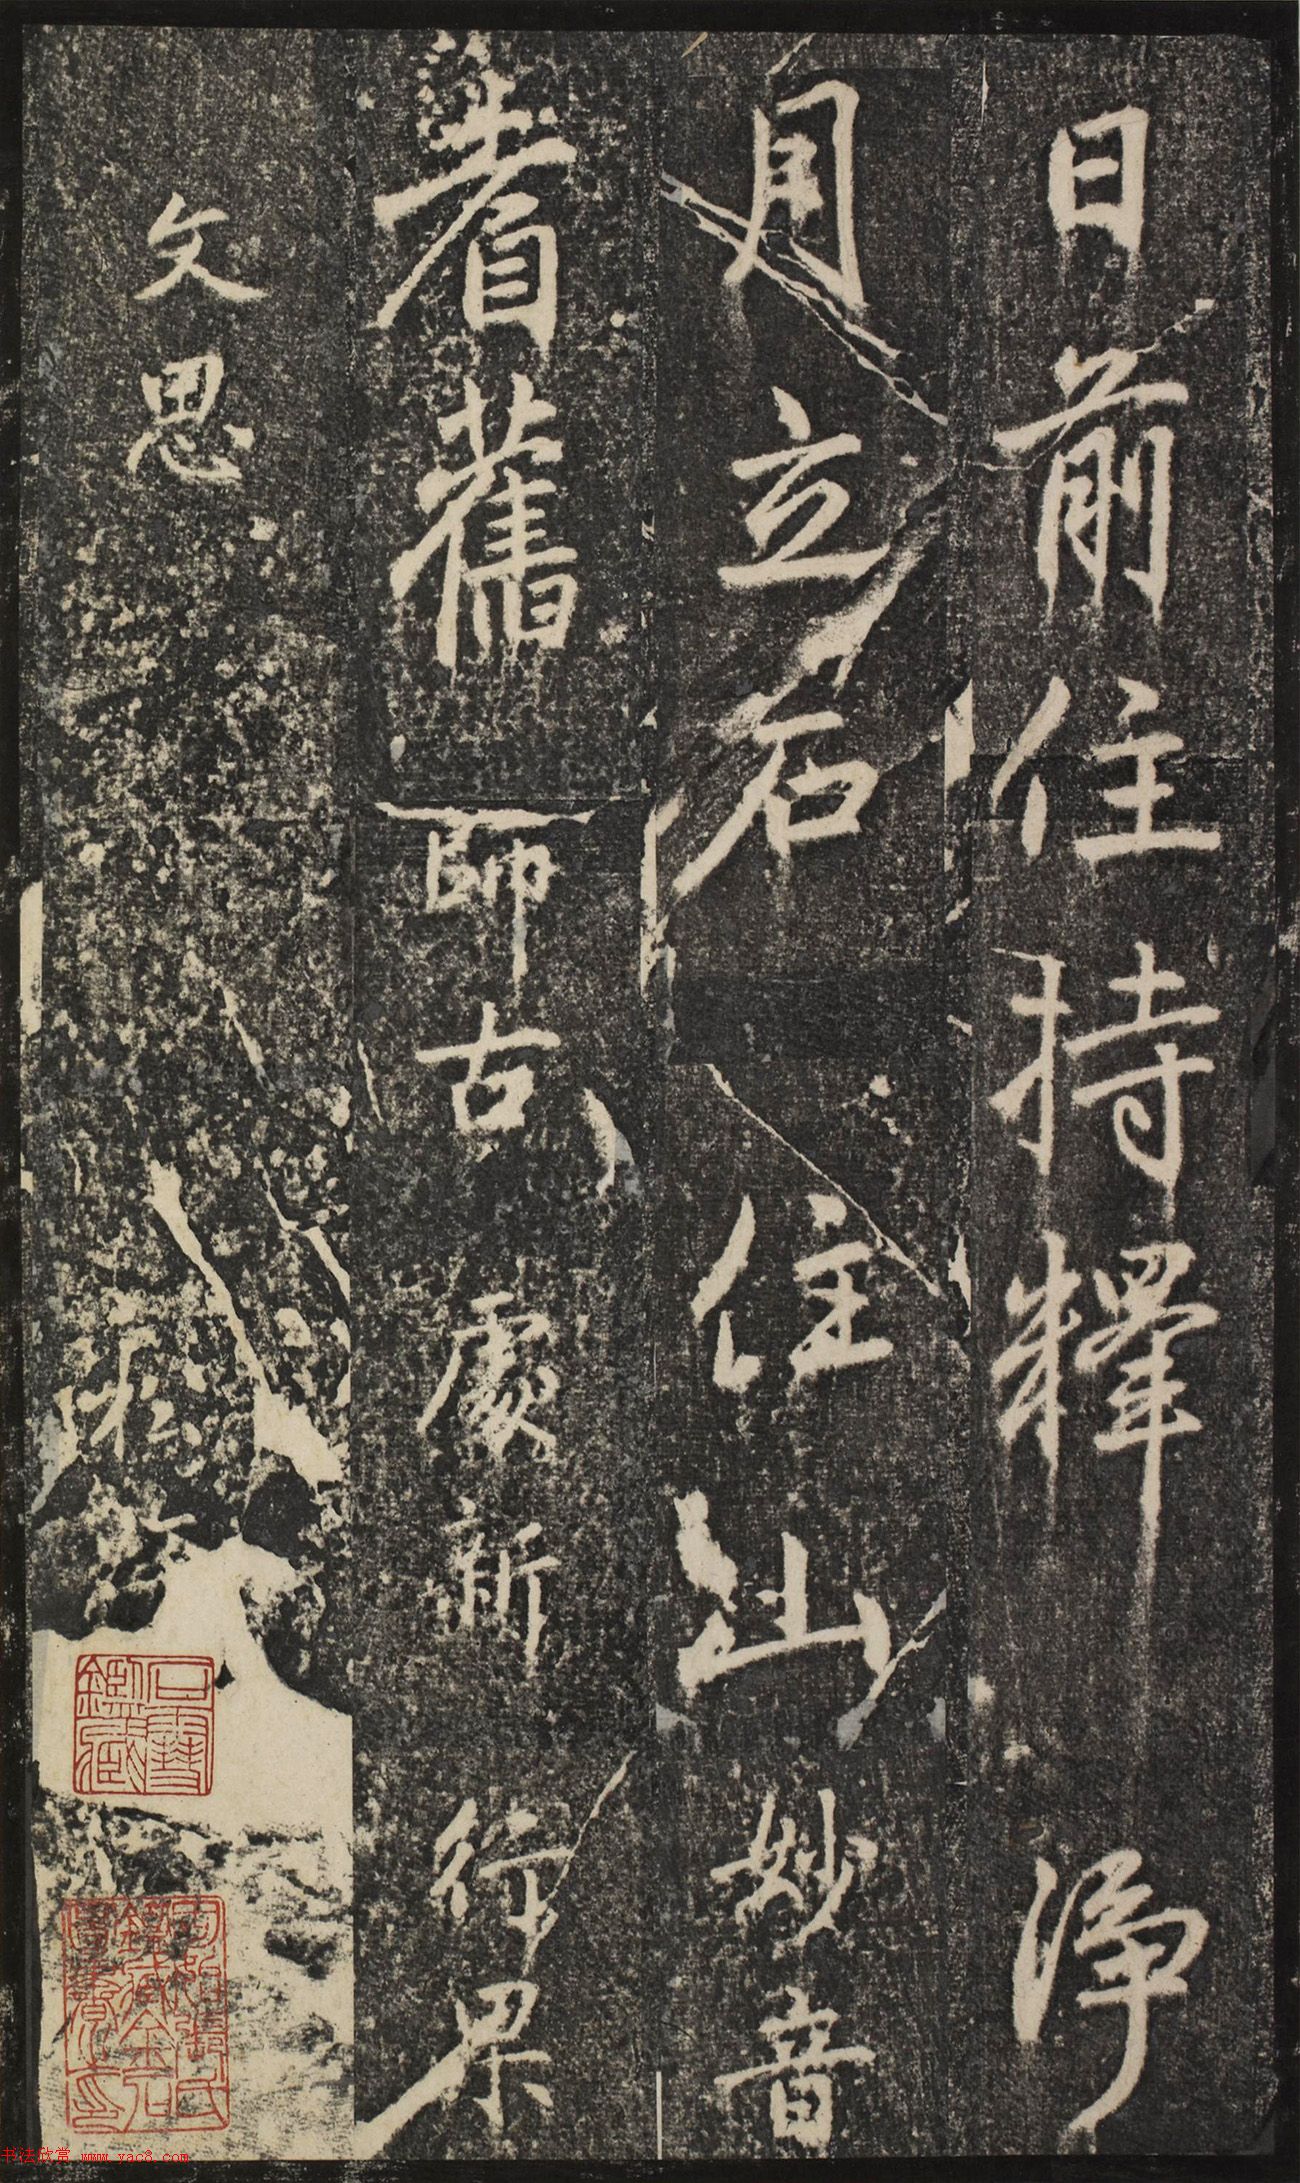 日前住持釋淨
月立石住山妙音
耆舊師古處新行果
文思
书法欣赏 www.yac8.com